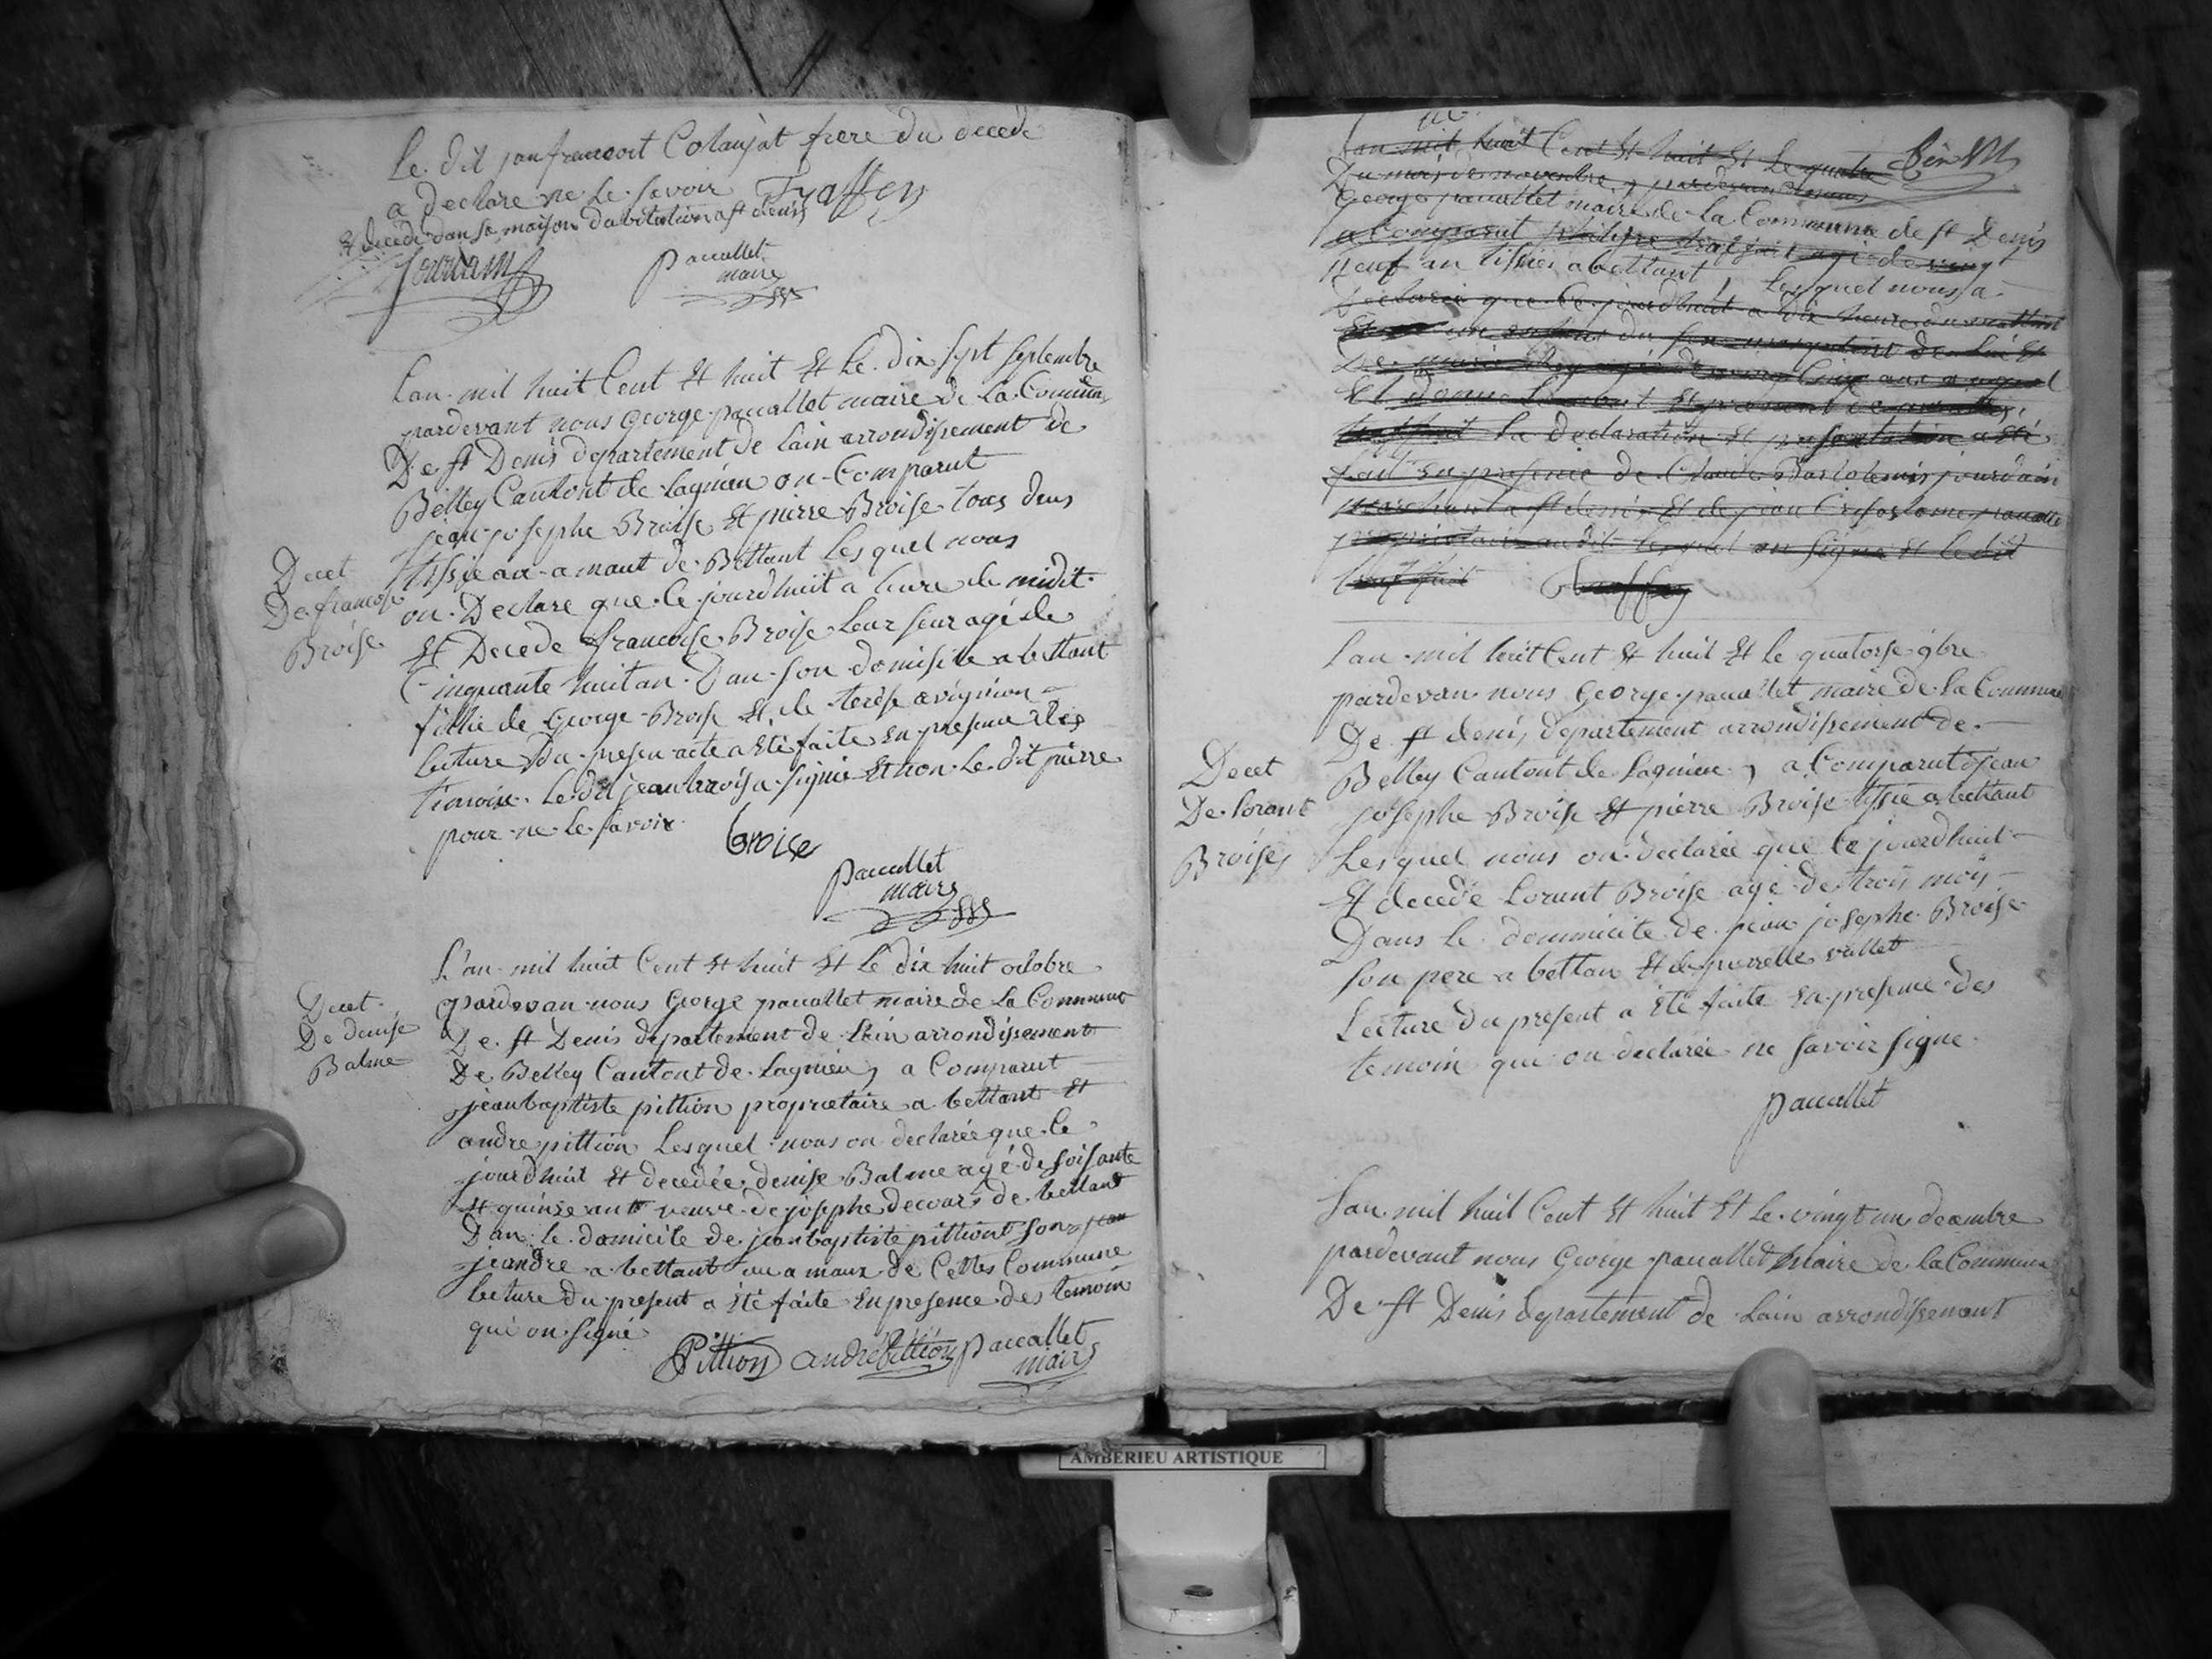 Le dit janfrancoit Colaujat frere du decede
a Declare ne Le savoir
& decede dan sa maison dabitation a st denis
Jourdain
paucallet
maire
Lan mil huit Cent Et huit Et Le dix sept septembre
pardevant nous George paucallet maire de La Commune
De st Denis departement de Lain arrondissement de
Belley Cantont de Lagnieu on Comparut
jean josephe Broise Et pierre Broise tous deus
tissieaux a maut de Bettant Lesquel nous
Decet
De francoise
Broise
on Declare que ce jourdhuit a heure de midit
Et Decede francoise Broise Leur seur agé de
Cinquante huit an Dan son domisile a bettant
fillie de George Broise Et de terese avignion
Lecture Du presen acte a Eté faite En presence des
temoin Le dit jean Broise a signié Et non Le dit pierre
pour ne Le savoir
broise
paucallet
maire
L'an mil huit Cent Et huit Et Le dix huit octobre
pardevan nous George paucallet maire de La Commune
Decet
De denise
Balme
De st Denis departement de Lain arrondissement
De Belley Cantont de Lagnieu, a Comparut
jeanbaptiste pittion proprietaire a bettant Et
andre pittion Lesquel nous on declarée que Ce
jourdhuit Et decedée denise Balme agé de soisante
Et quinze ant veuve de josephe decours de bettant
Dan le domicile de jeanbaptiste pittiont son
jeandre a bettant ou a maux de Cettes Commune
Lecture du present a Eté faite En presence des temoin
qui on signé
Pittion andré Pittion paucallet
maire
Lan mil huit Cent Et huit Et Le quatre
Du mois de novembre, pardevan nous
George paucallet maire de La Commune de st Denis
a Comparut agé de vingt
neuf an tissier a bettant, Lesquel nous a
Declarée que Ce jourdhuit a dix heure du mattin
La Declaration Et presentation a Eté
fait En presence de Claude Bartolemis jourdain
marchant a st denis Et de jean Crisostome paucallet
proprietaire audit Lesquel on signé Et le dit
Lan mil huit Cent Et huit Et le quatorse 9bre
pardevan nous George paucallet maire de La Commune
De st denis departement arrondissement de
Belley Cantont de Lagnieu, a Comparut jean
Decet
De Lorant
Broise
josephe Broise Et pierre Broise tissie a bettant
Lesquel nous on declarée que Ce jourdhuit
Et decede Lorant Broise agé de trois mois
Dans le dommicite de jean josephe Broise
son pere a bettan Et de pierrette vallet
Lecture du present a Eté faite En presence des
temoin que on declarée ne savoir signe
paucallet
Lan mil huit Cent Et huit Et Le vingt un decembre
pardevant nous George paucallet maire de La Commune
De st Denis departement de Lain arrondissement
AMBERIEU ARTISTIQUE